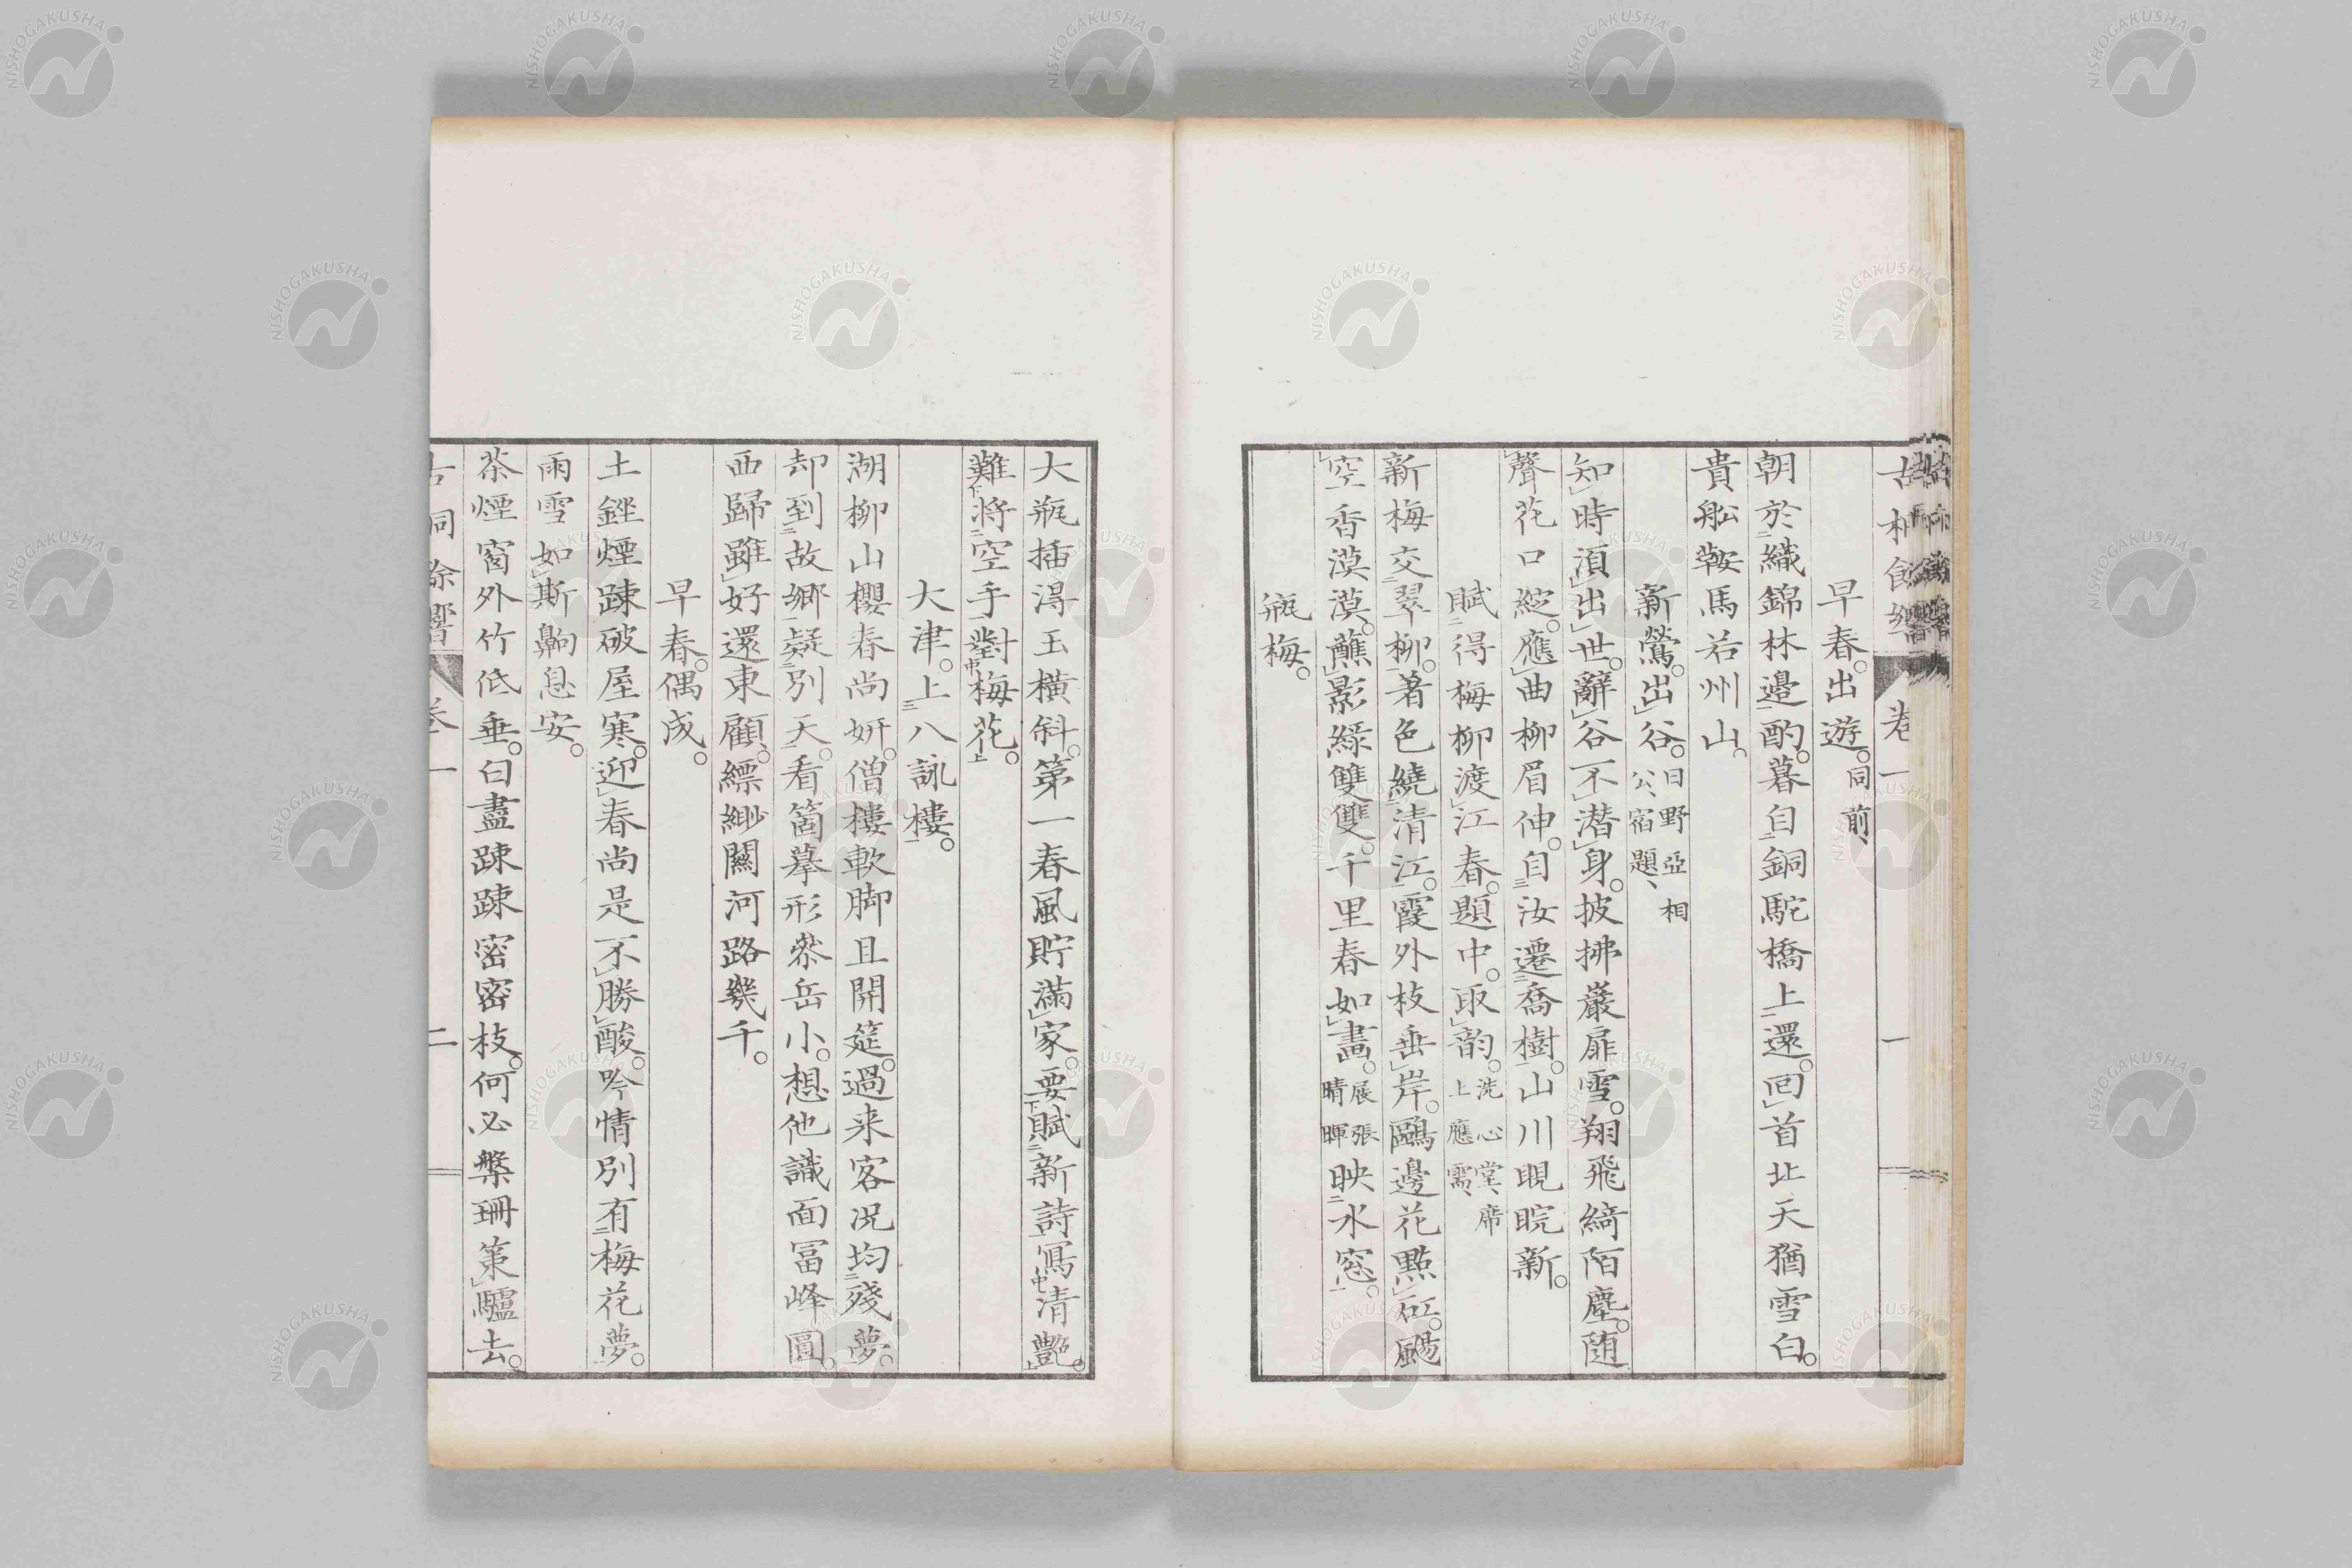 早春。出遊。同前、
朝於織錦林邊酌。暮自銅駝橋上還。回首北天猶雪白。
貴船鞍馬若州山。
新鶯。出谷。日野亞相公、宿題、
知時須出世。辭谷不潜身。披拂巖扉雪。翔飛綺陌塵。随
聲花口綻。應曲柳眉伸。自汝遷喬樹。山川睍睆新。
賦得梅柳渡江春。題中。取韵。洗心堂、席上應需、
新梅交翠柳。著色繞清江。霞外枝垂岸。鷗邊花點矼。颺
空香漠漠。蘸影綠雙雙。千里春如畵。展張晴暉映水窓。
瓶梅。
大瓶插得玉橫斜。第一春風貯滿家。要賦新詩寫清艷。
難將空手對梅花。
大津。上八詠樓。
湖柳山櫻春尚妍。僧樓軟脚且開筵。過来客况均殘夢。
却到故鄉疑別天。看箇摹形叅岳小。想他識面冨峰圓。
西歸雖好還東顧。縹緲關河路幾千。
早春。偶成。
土銼煙踈破屋寒。迎春尚是不勝酸。吟情別有梅花夢。
雨雪如斯齁息安。
茶煙窗外竹低垂。白盡踈踈密密枝。何必槃珊策驢去。
卷一
二
NISHOGAKUSHA